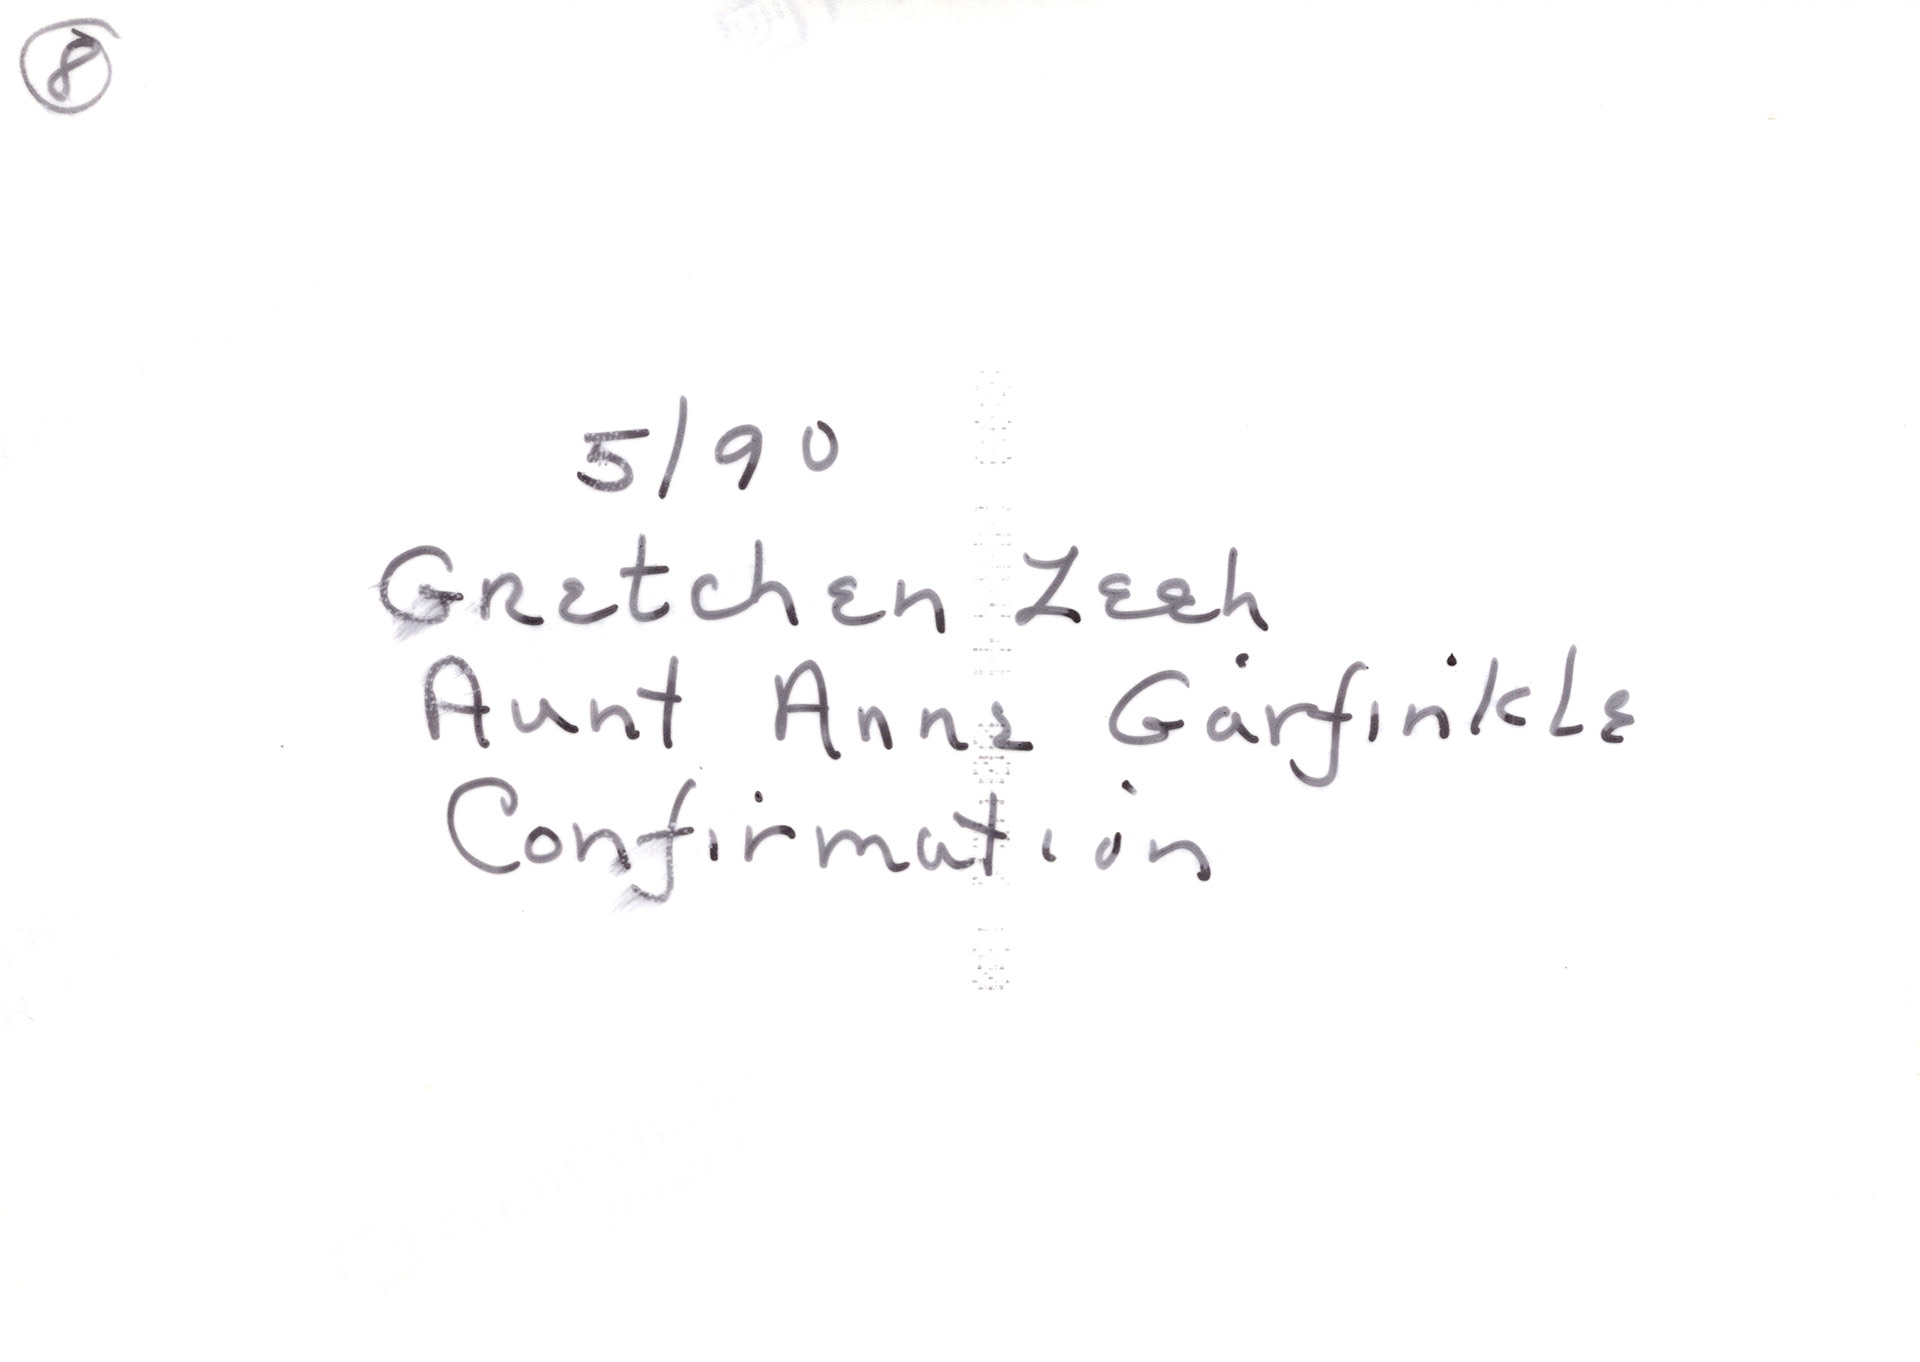 8
5/90
Gretchen Zeeh
Aunt Anne Garfinkle
Confirmation